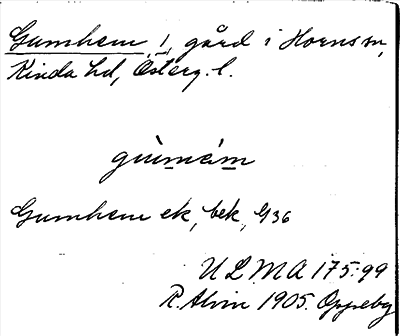 Gumhem, 1, gård i Horns sn,
Kinda hd, Österg. l.
gùmæ̀m
Gumhem ek, bek, G36
ULMA 175:99
R. Alvin 1905. Oppeby